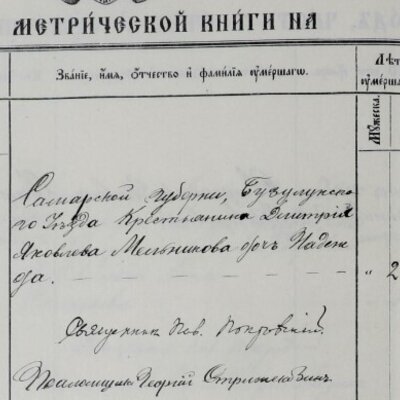 МЕТРИ́ЧЕСКОЙ КНИ́ГИ НА
Зва́нїе, и́мя, ѻ́тчество и҆ фами́лїя ᲂу҆ме́ршагѡ.
Лѣт
ᲂу҆ме́рша
Мꙋ́жеска.
Самарской губернiи, Бузулукско-
го Уѣзда Крестьянина Дмитрiя
Яковлева Мельникова дочь Надеж-
да.
" 2
Священник Пав. Покровскiй.
Псаломщикъ Георгiй